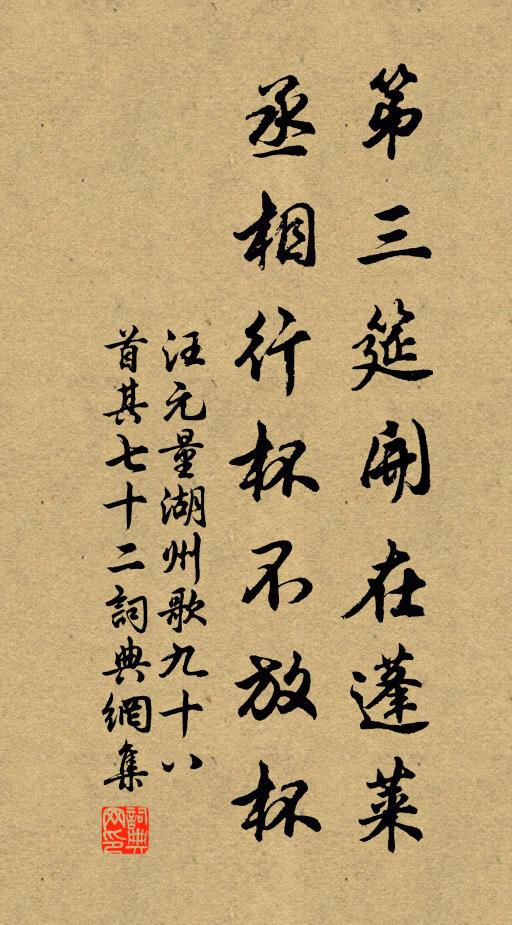 第三筵開在蓬萊
丞相行杯不放杯
汪元量湖州歌九十八
首其七十二詞典網集
詞典网印